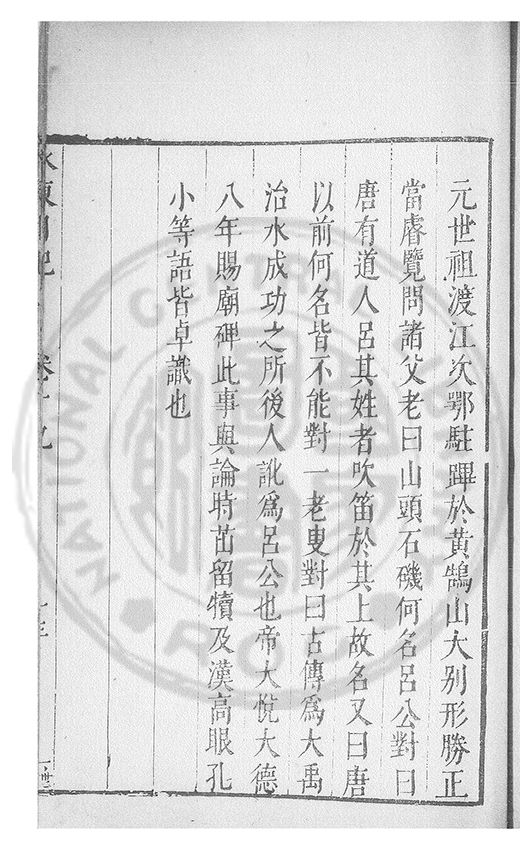 元世祖渡江次鄂駐蹕於黃鵠山大别形勝正
當睿覽問諸父老曰山頭石磯何名呂公對曰
唐有道人呂其姓者吹笛於其上故名又曰唐
以前何名皆不能對一老叟對曰古傳爲大禹
治水成功之所後人訛爲呂公也帝大悅大德
八年賜廟碑此事與論時苗留犢及漢高眼孔
小等語皆卓識也
NATIONAL CENTRAL LIBRARY